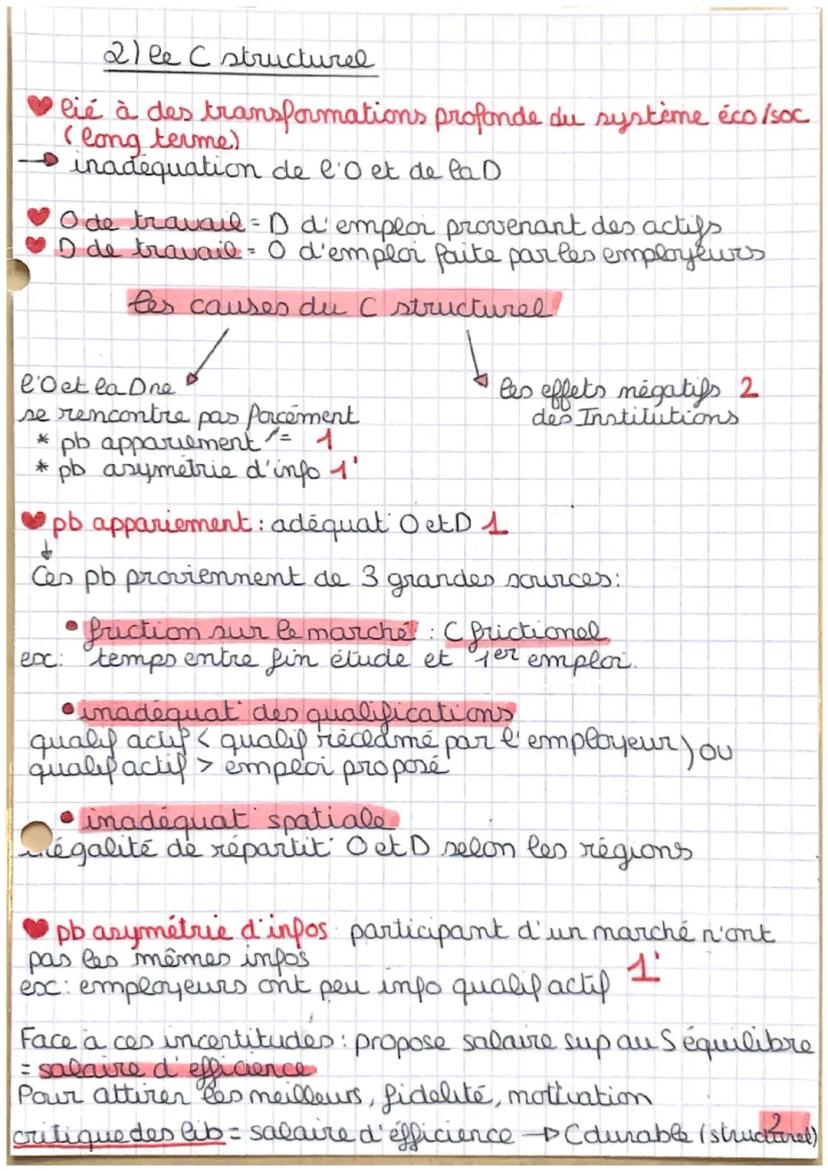 2) le C structurel
♥ lié à des transformations profonde du système éco/soc
(long terme)
→ inadéquation de l'O et de la D
♥ O de travail = D d'emploi provenant des actifs
♥ D de travail = O d'emploi faite par les employeurs
les causes du C structurel
l'O et la D ne
se rencontre pas forcément
* pb appariement ≠ 1
* pb asymétrie d'info 1'
les effets négatifs 2
des Institutions
♥ pb appariement : adéquat° O et D 1
↓
Ces pb proviennent de 3 grandes sources :
• friction sur le marché : C frictionel
ex : temps entre fin étude et 1er emploi.
• inadéquat° des qualifications
qualif actif < qualif réclamé par l'employeur ) ou
qualif actif > emploi proposé
• inadéquat° spatiale
inégalité de répartit° O et D selon les régions
♥ pb asymétrie d'infos : participant d'un marché n'ont
pas les mêmes infos
1'
ex : employeurs ont peu info qualif actif
Face à ces incertitudes : propose salaire sup au S équilibre
= salaire d'efficience
Pour attirer les meilleurs, fidelité, motivation
critique des lib = salaire d'éfficience → C durable (structurel)
2